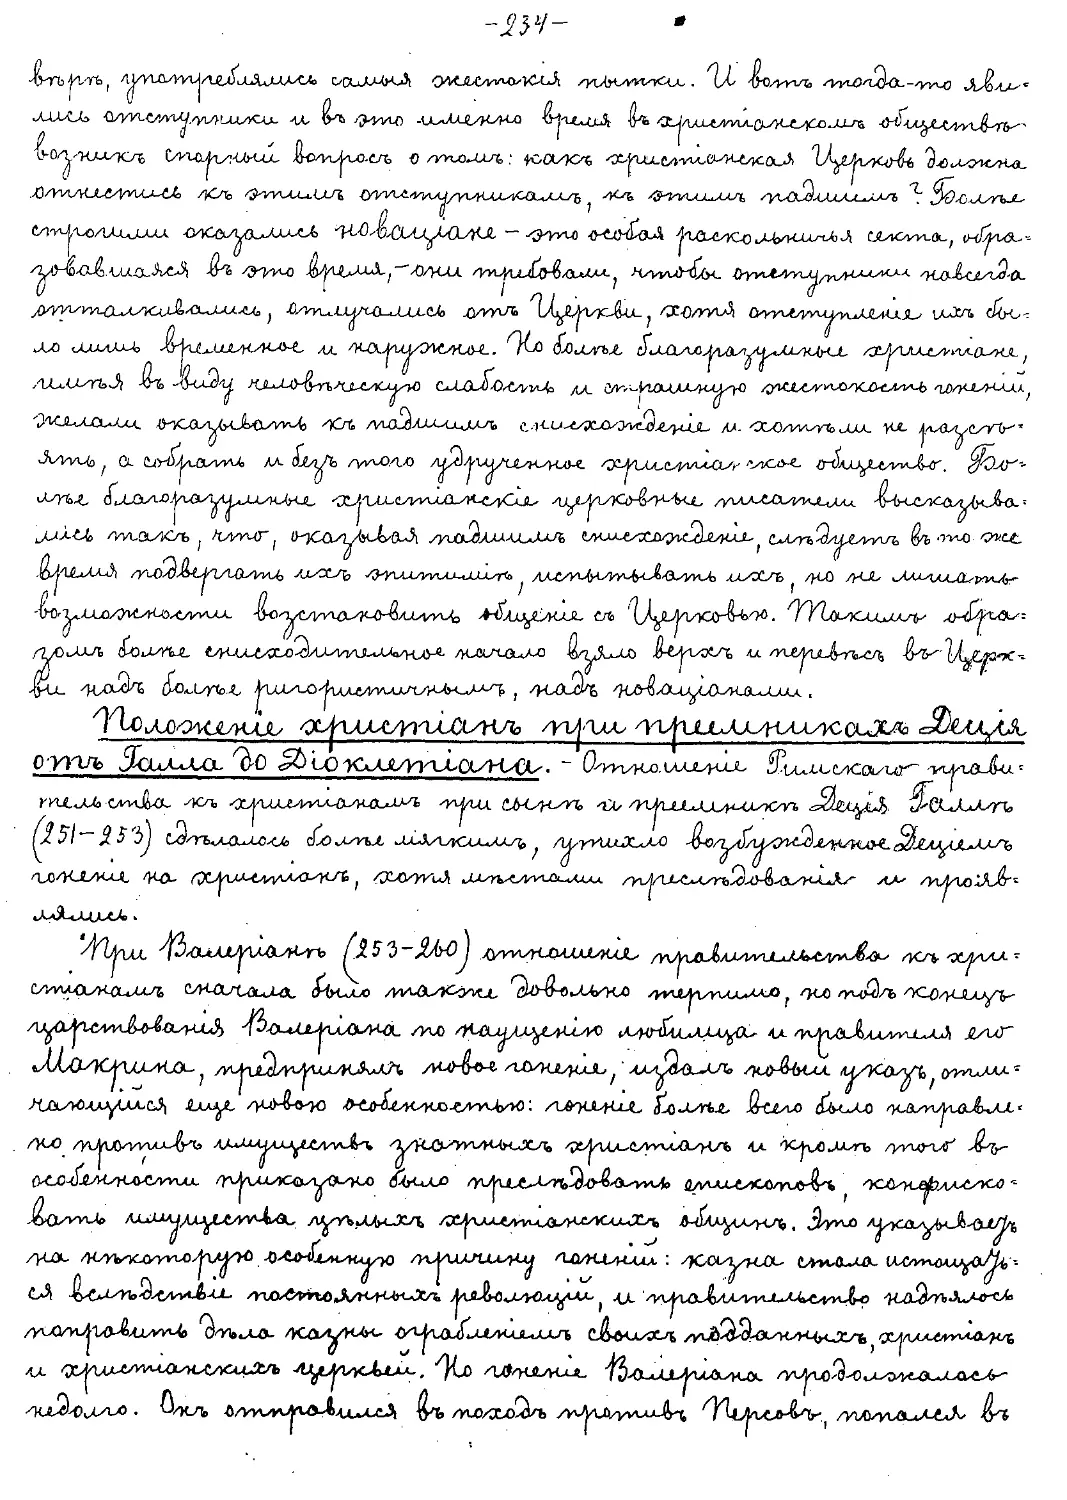 -234-
вѣрѣ, употреблялись самыя жестокія пытки. И вотъ тогда-то яви-
лись отступники и въ это именно время въ христіанскомъ обществѣ
возникъ спорный вопросъ о томъ: какъ христіанская Церковь должна
отнестись къ этимъ отступникамъ, къ этимъ падшимъ? Болѣе
строгими оказались новаціане - это особая раскольничья секта, обра-
зовавшаяся въ это время, - они требовали, чтобы отступники навсегда
отталкивались, отлучались отъ Церкви, хотя отступленіе ихъ бы-
ло лишь временное и наружное. Но болѣе благоразумные христіане,
имѣя въ виду человѣческую слабость и страшную жестокость гоненій,
желали оказывать къ падшимъ снисхожденіе и хотѣли не разсѣ-
ять, а собрать и безъ того удрученное христіанское общество. Бо-
лѣе благоразумные христіанскіе церковные писатели высказыва-
лись такъ, что, оказывая падшимъ снисхожденіе, слѣдуетъ въ то же
время подвергать ихъ эпитиміѣ, испытывать ихъ, но не лишать
возможности возстановить общеніе съ Церковью. Такимъ обра-
зомъ болѣе снисходительное начало взяло верхъ и перевѣсъ въ Церк-
ви надъ болѣе ригористичнымъ, надъ новаціанами.
Положеніе христіанъ при преемникахъ Деція
отъ Галла до Діоклетіана. - Отношеніе Римскаго прави-
тельства къ христіанамъ при сынѣ и преемникѣ Деція Галлѣ
(251-253) сдѣлалось болѣе мягкимъ, утихло возбужденное Деціемъ
гоненіе на христіанъ, хотя мѣстами преслѣдованія и прояв-
лялись.
При Валеріанѣ (253-260) отношеніе правительства къ хри-
стіанамъ сначала было также довольно терпимо, но подъ конецъ
царствованія Валеріана по наущенію любимца и правителя его
Макрина, предпринялъ новое гоненіе, издалъ новый указъ, отли-
чающійся еще новою особенностью: гоненіе болѣе всего было направле-
но противъ имуществъ знатныхъ христіанъ и кромѣ того въ
особенности приказано было преслѣдовать епископовъ, конфиско-
вать имущества цѣлыхъ христіанскихъ общинъ. Это указываетъ
на нѣкоторую особенную причину гоненій: казна стала истощать-
ся вслѣдствіе постоянныхъ революцій, и правительство надѣялось
поправить дѣла казны ограбленіемъ своихъ подданныхъ, христіанъ
и христіанскихъ церквей. Но гоненіе Валеріана продолжалось
недолго. Онъ отправился въ походъ противъ Персовъ, попался въ